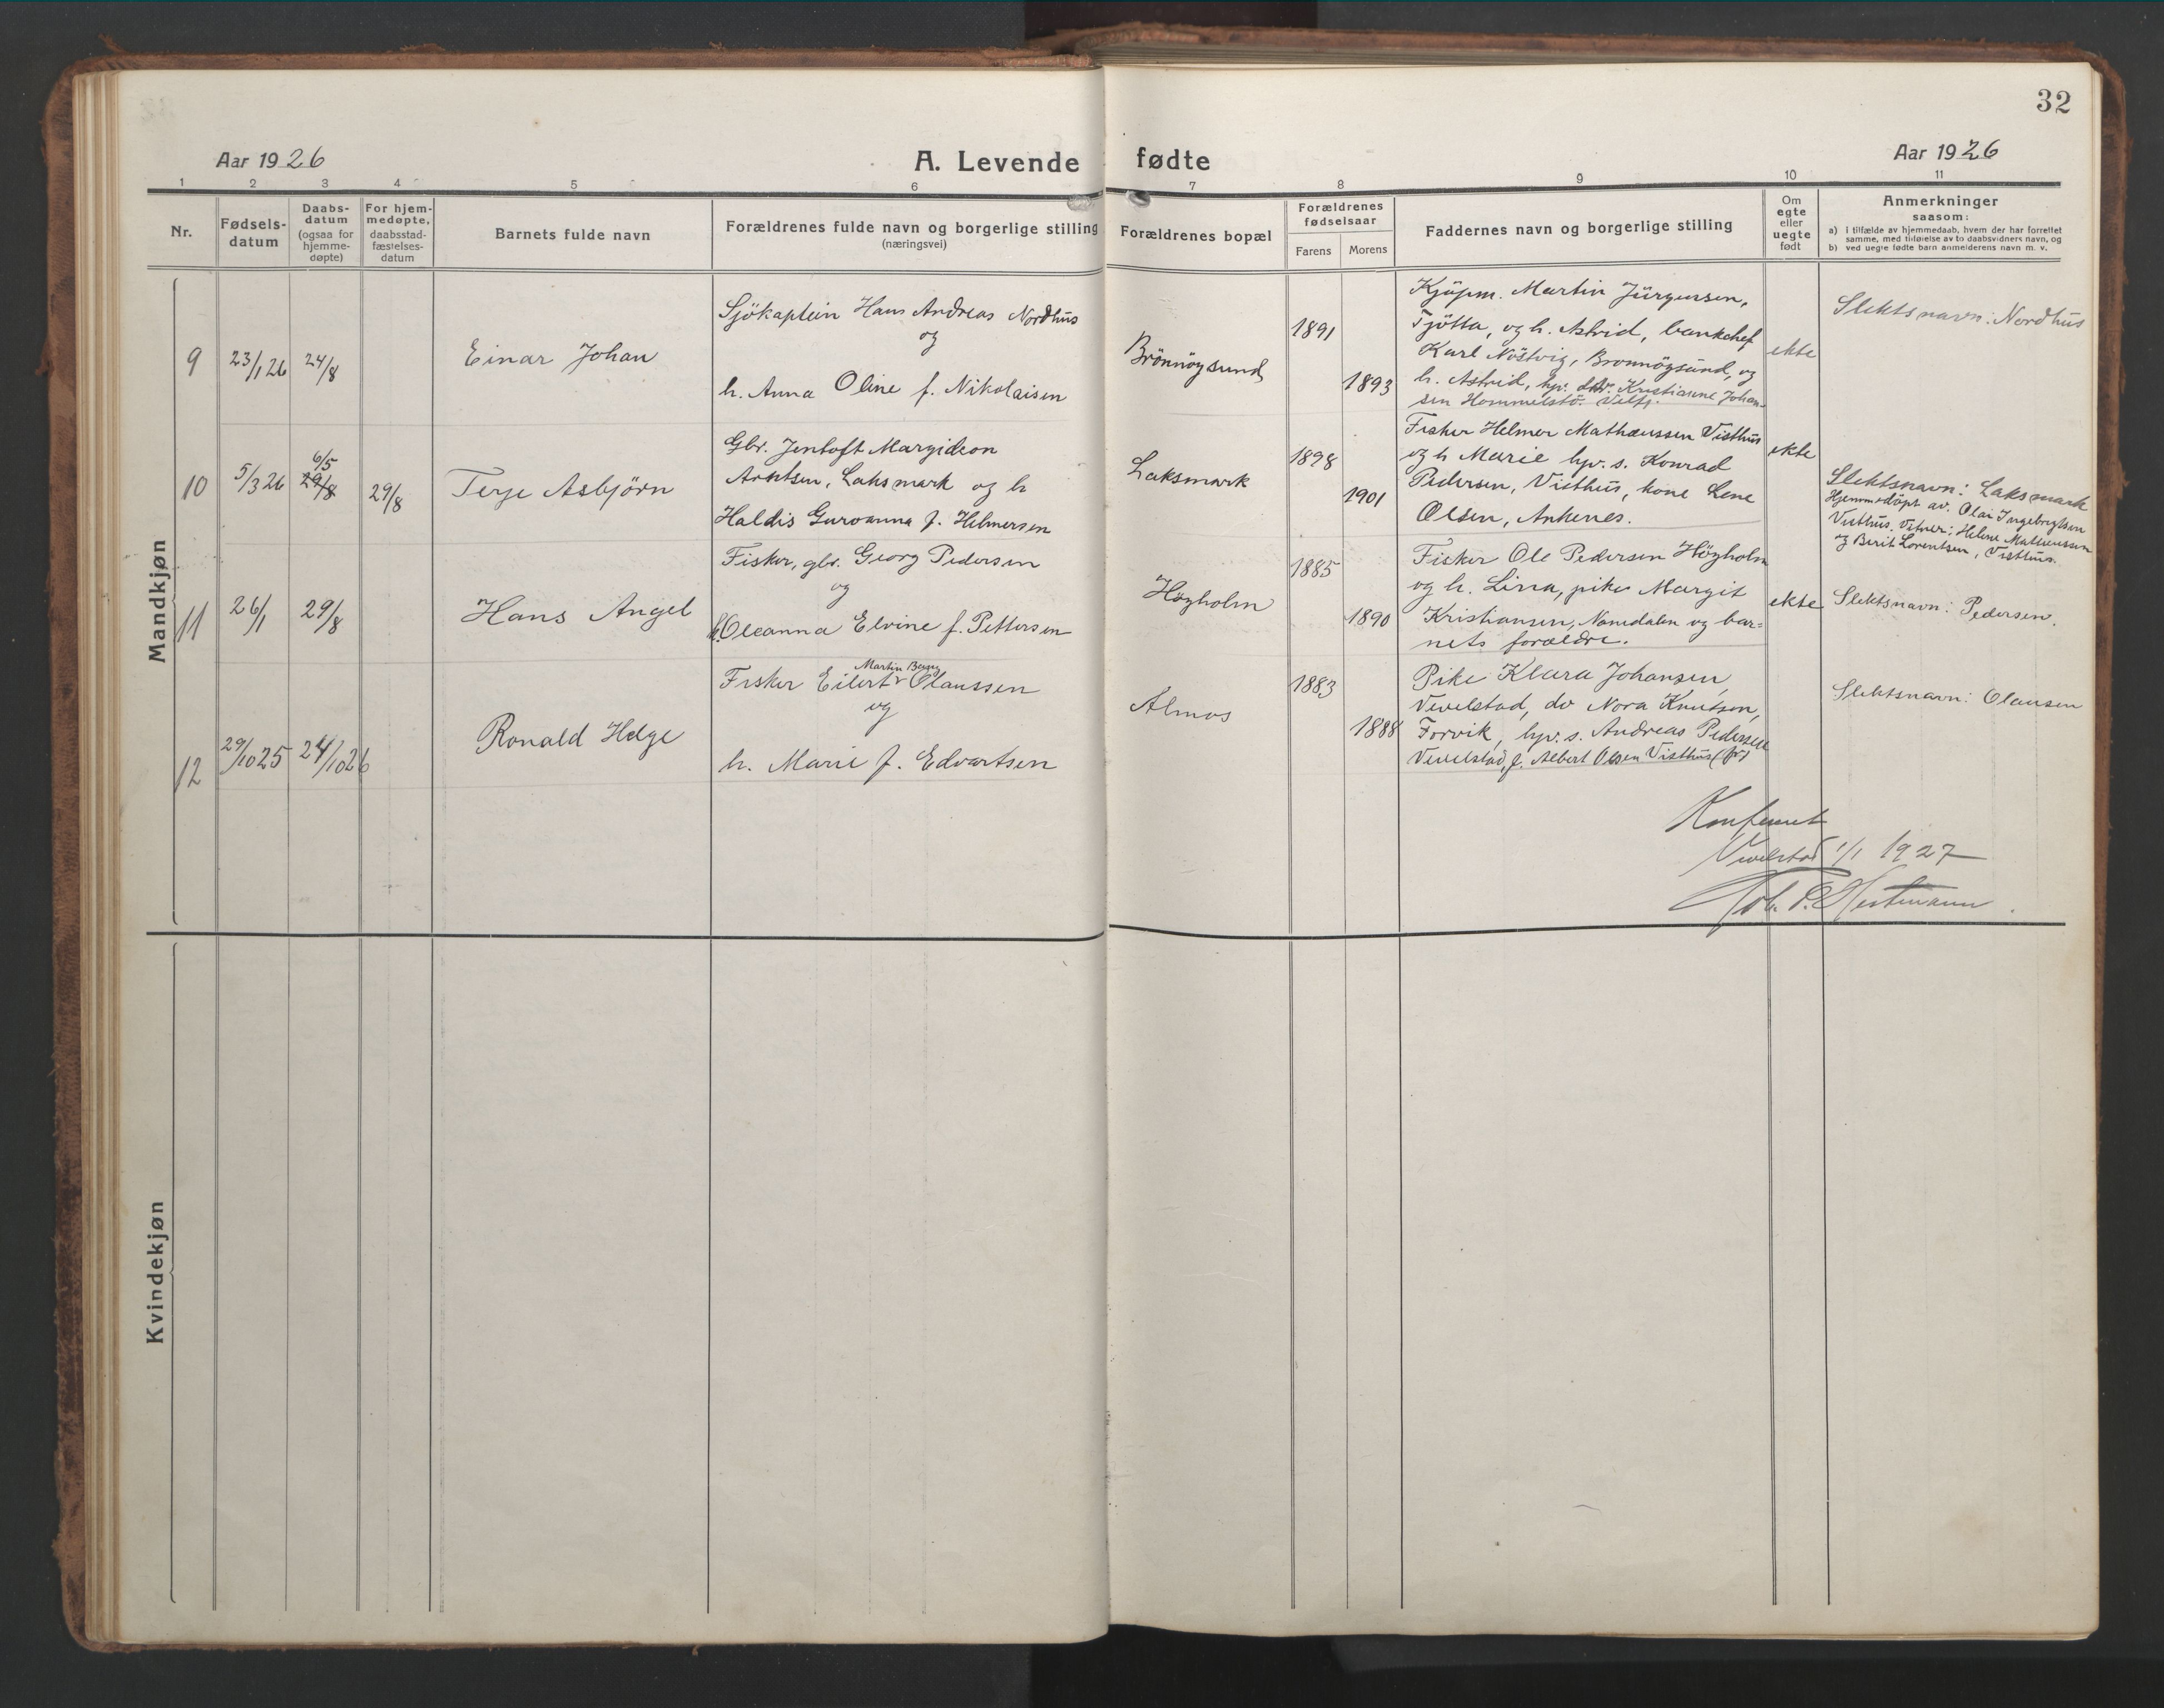 32
Aar 1926
A. Levende fødte
Aar 1926
1 2 3 4 5 6 7 8 9 10 11
Nr.
Fødsels-
datum
Daabs-
datum
(ogsaa for
hjemme-
døpte)
For hjem-
medøpte,
daabsstad-
fæstelses-
datum
Barnets fulde navn
Forældrenes fulde navn og borgerlige stilling
(næringsvei)
Forældrenes bopæl
Forældrenes
fødselsaar
Farens Morens
Faddernes navn og borgerlige stilling
Om
egte
eller
uegte
født
Anmerkninger
saasom:
a) i tilfælde av hjemmedaab, hvem der har forrettet
samme, med tilføielse av to daabsvidners navn, og
b) ved uegte fødte barn anmelderens navn m. v.
Mandkjøn
9
23/1 26
24/8
Einar Johan
Sjökaptein Hans Andreas Nordhus
og
h. Anna Oline f. Nikolaisen
Brönnöysund
1891
1893
Kjöpm. Martin Jürgensen,
Tjötta, og h. Astrid, bankchef
Karl Nöstvig, Bronnögsund, og
h. Astrid, hv. Kristianne Johan-
sen Hommelstö. Velfj.
ekte
Slektsnavn: Nordhus
10
5/3 26
6/5
29/8
29/8
Terje Asbjörn
Gbr. Jentoft Margideon
Arntsen, Laksmark og h
Haldis Guroanna f. Helmersen
Laksmark
1898
1901
Fisker Helmer Mathæussen Visthus
og h Marie hv. s. Konrad
Pedersen, Visthus, kone Lene
Olsen, Ankenes.
ekte
Slektsnavn: Laksmark
Hjemmedöpt av. Olai Ingebrigtsen
Visthus. Vitner: Helene Matheussen
og Berit Lorentsen, Visthus.
11
26/1
29/8
Hans Angel
Fisker, gbr. Georg Pedersen
og
h. Oleanna Elvine f. Pettersen
Högholm
1885
1890
Fisker Ole Pedersen Högholm
og h. Lina, pike Margit
Kristiansen, Namdalen og bar=
nets forældre.
ekte
Slektsnavn: Pedersen.
12
29/10 25
24/10 26
Ronald Helge
Martin Berg
Fisker Eilert Olaussen
og
h. Marie f. Edvartsen
Almos
1883
1888
Pike Klara Johansen,
Vevelstad, do Nora Knutsen,
Forvik, hv. s. Andreas Pedersen
Vevelstad, f. Albert Olsen Visthus (fr)
Slektsnavn: Olausen
Konferert
Vevelstad 1/1 1927
Joh. P. Hestmann
Kvindekjøn